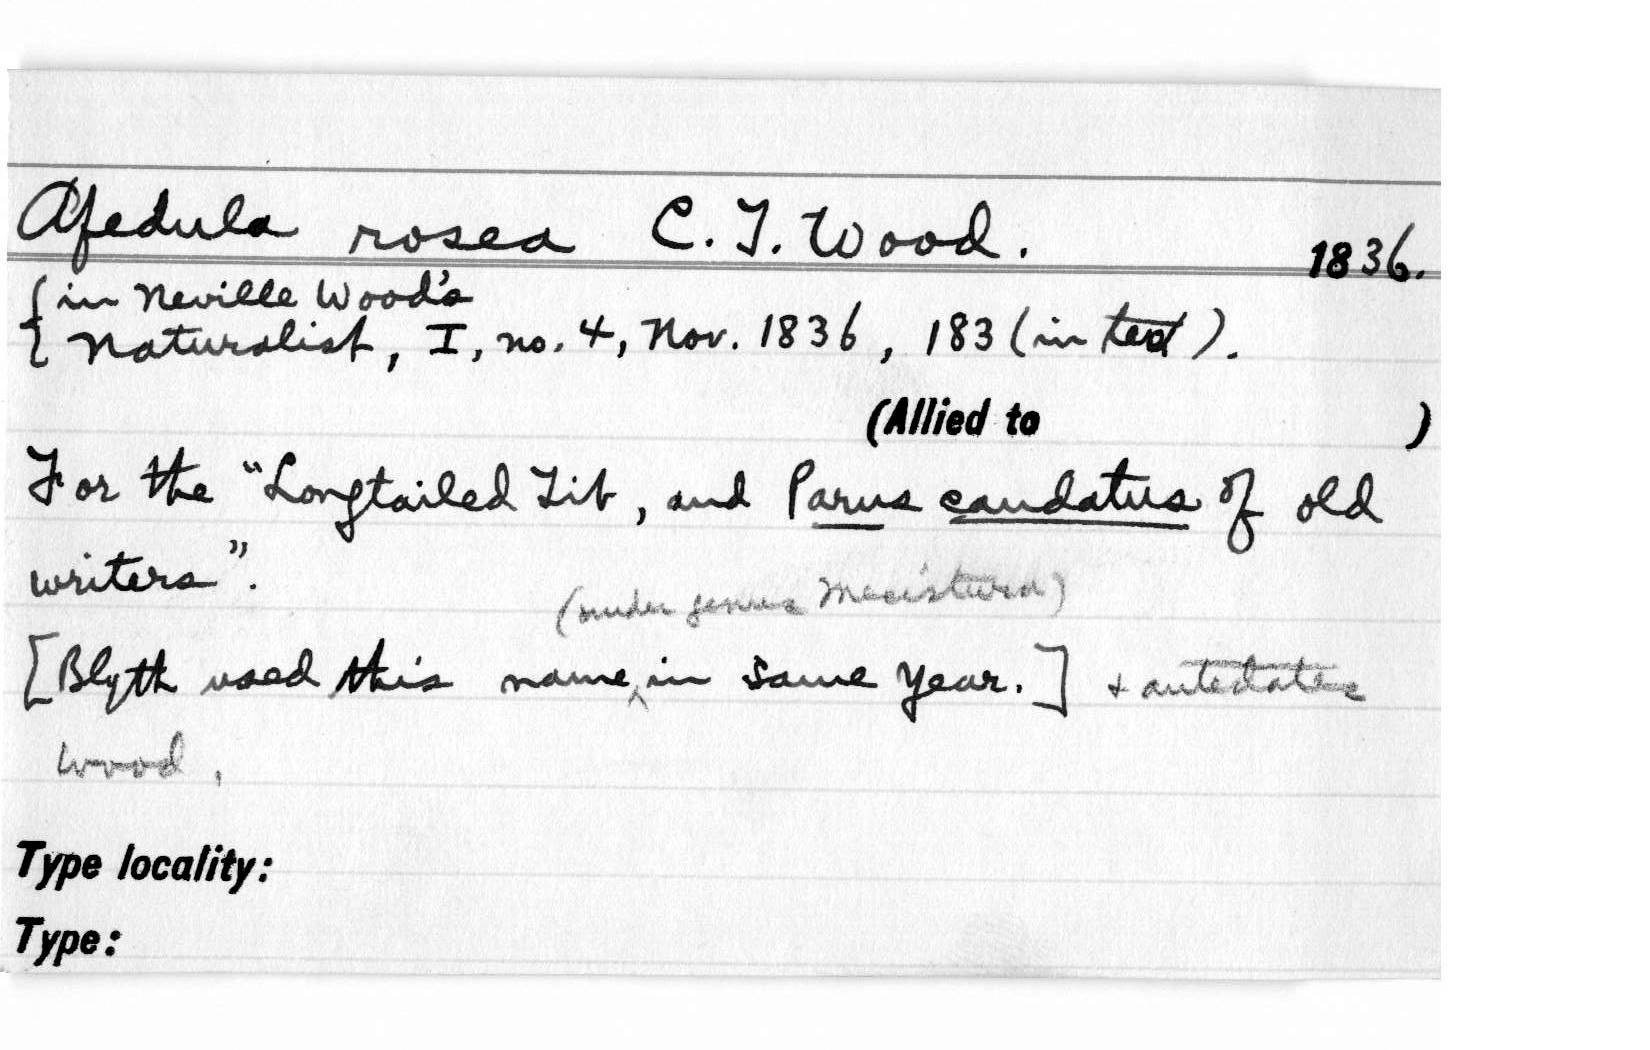 Afedula rosea C.T. Wood. 1836.
in Neville Wood's
Naturalist, I, no. 4, Nov. 1836, 183 (in text).
(Allied to )
For the "Longtailed Tit, and Parus caudatus of old
writers".
(under genus Mecistura)
[Blyth used this name ‸ in same year.] + antedates
Wood,
Type locality:
Type: